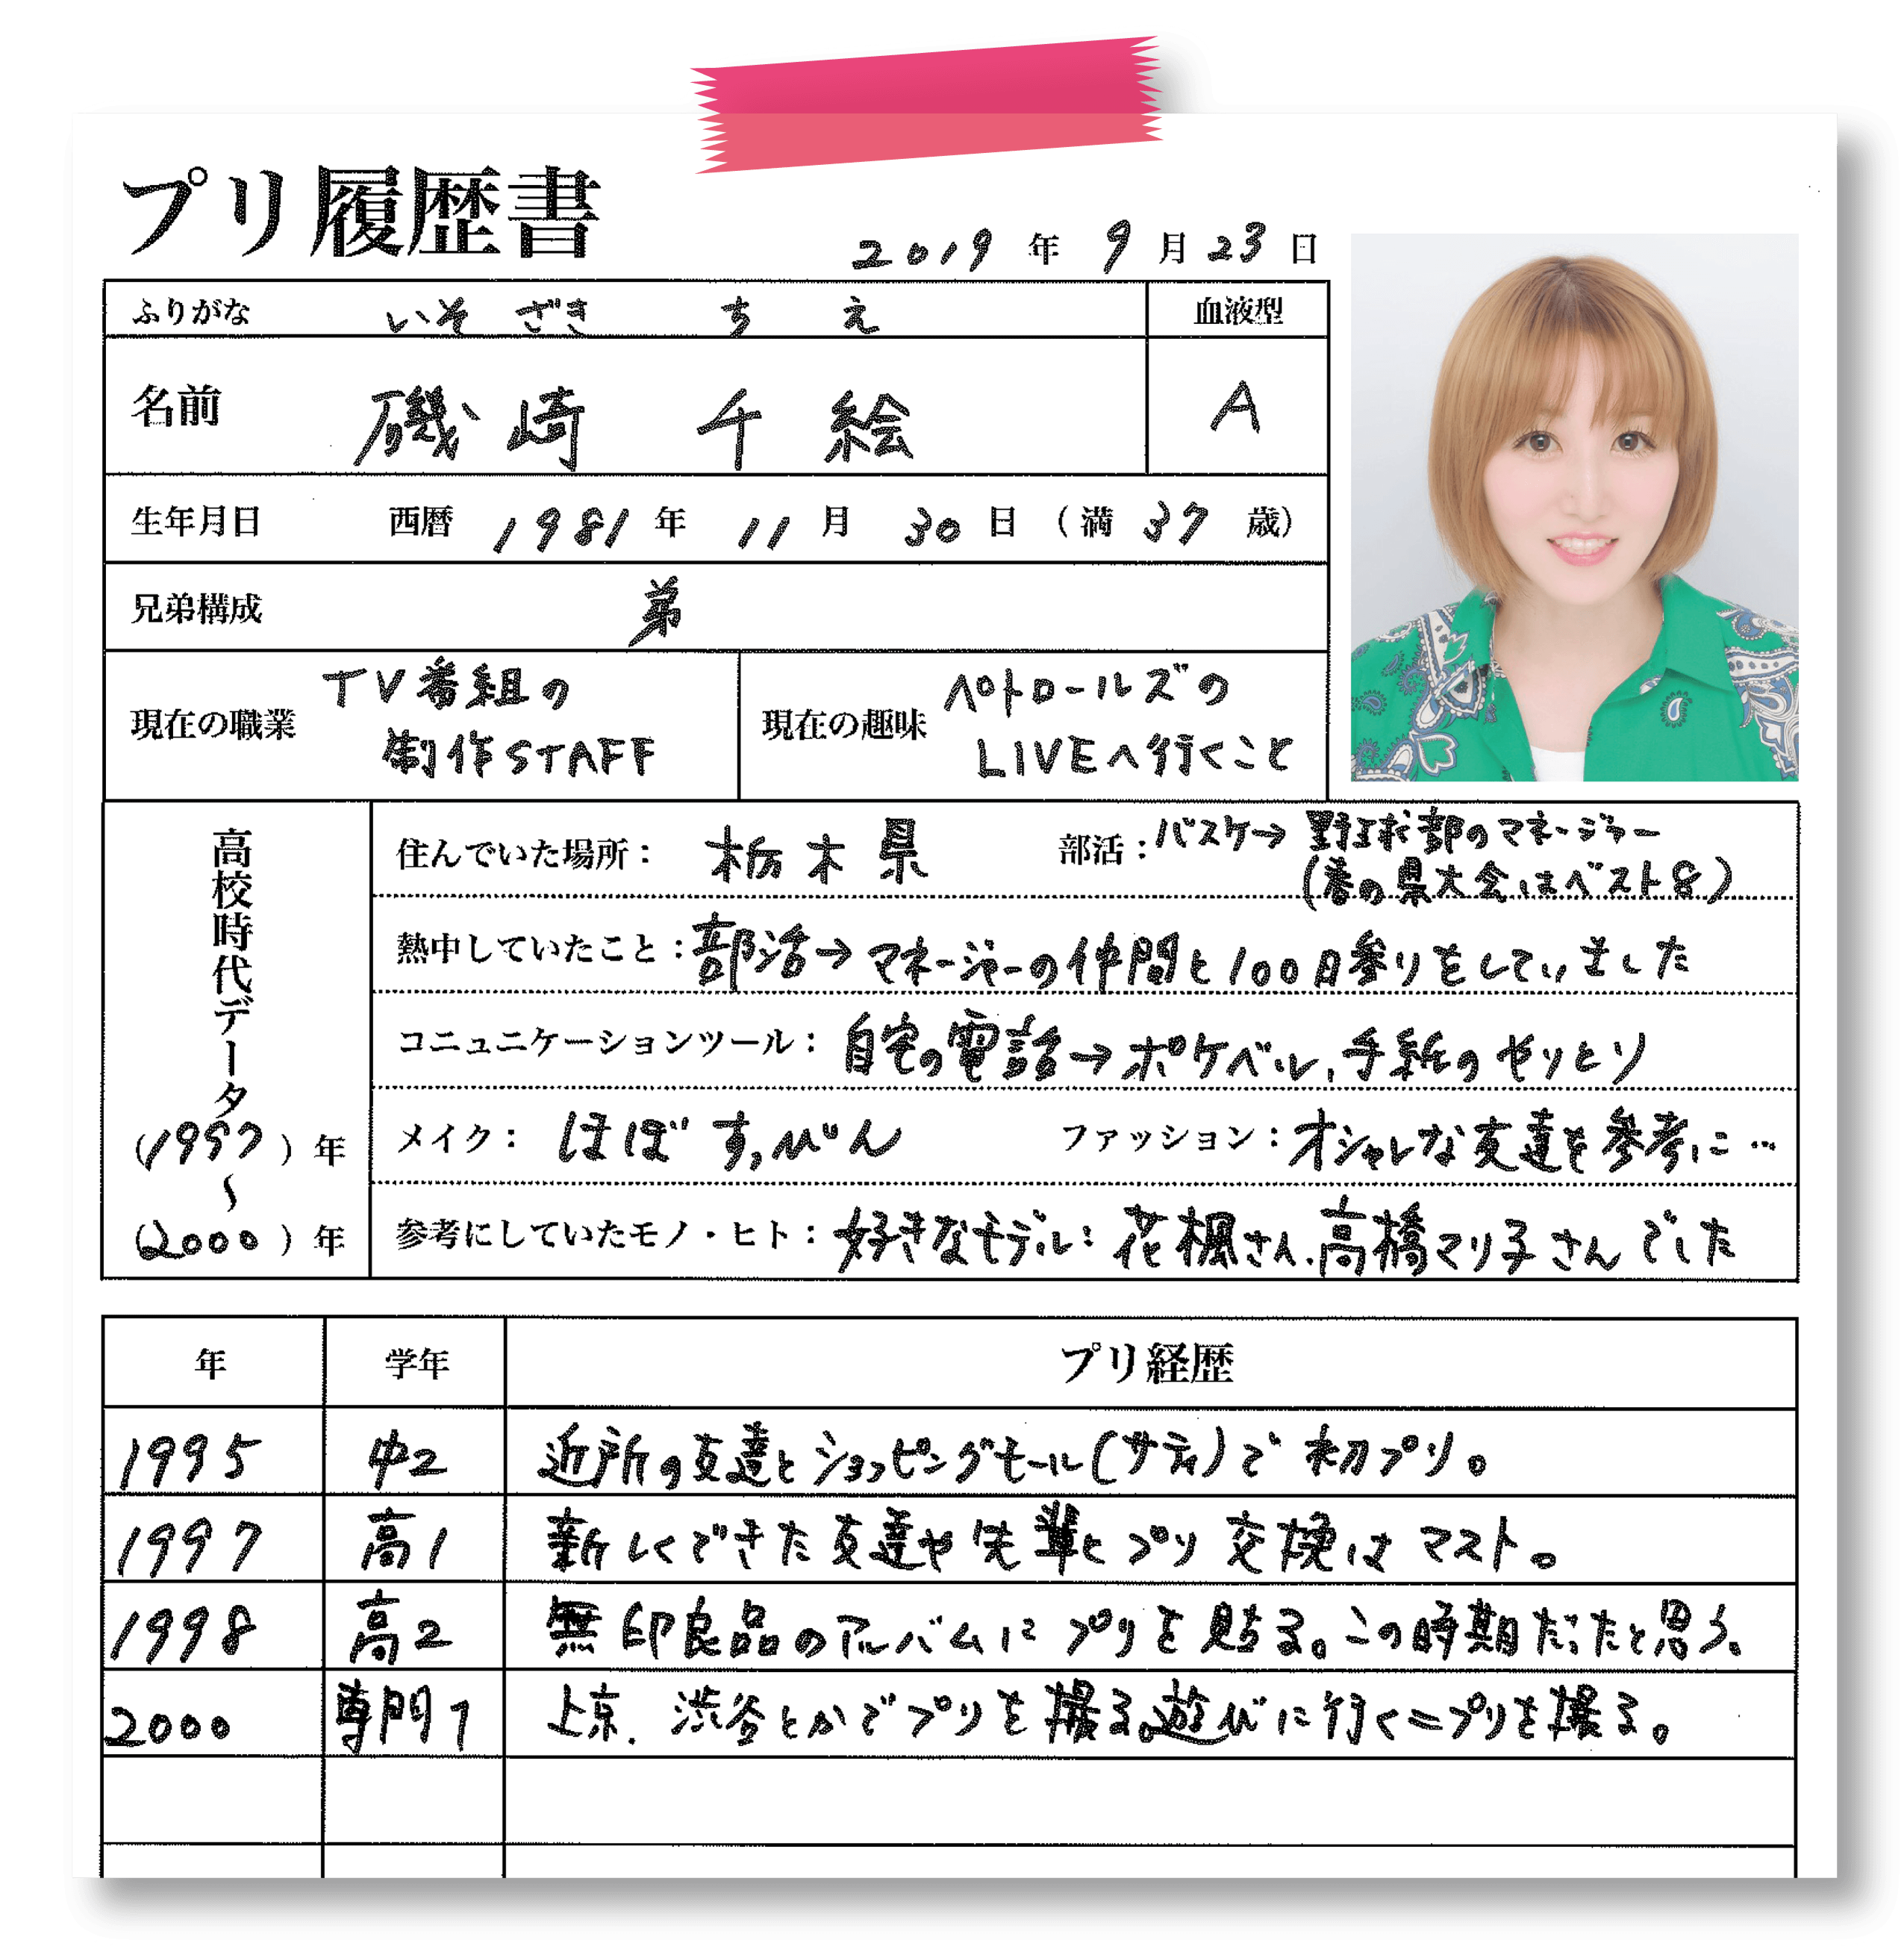 プリ履歴書
2019 年 9 月 23 日
ふりがな いそ ざき ち え 血液型
名前 磯崎 千絵 A
生年月日 西暦 1981 年 11 月 30 日 (満 37 歳)
兄弟構成 弟
現在の職業 TV番組の
制作STAFF
現在の趣味 ペトロールズの
LIVEへ行くこと
高校時代データ
(1997) 年
〜
(2000) 年
住んでいた場所： 栃木県
部活：バスケ→ 野球部のマネージャー
(春の県大会はベスト8)
熱中していたこと：部活→マネージャーの仲間と100日参りをしていました
コニュニケーションツール： 自宅の電話→ポケベル、手紙のやりとり
メイク： ほぼすっぴん
ファッション：オシャレな友達を参考に…
参考にしていたモノ・ヒト：好きなモデル：花楓さん、高橋マリ子さんでした
年 学年 プリ経歴
1995 中2 近所の友達とショッピングモール(サティ)で初プリ。
1997 高1 新しくできた友達や先輩とプリ交換はマスト。
1998 高2 無印良品のアルバムにプリを貼る。この時期だったと思う。
2000 専門1 上京、渋谷とかでプリを撮る。遊びに行く＝プリを撮る。